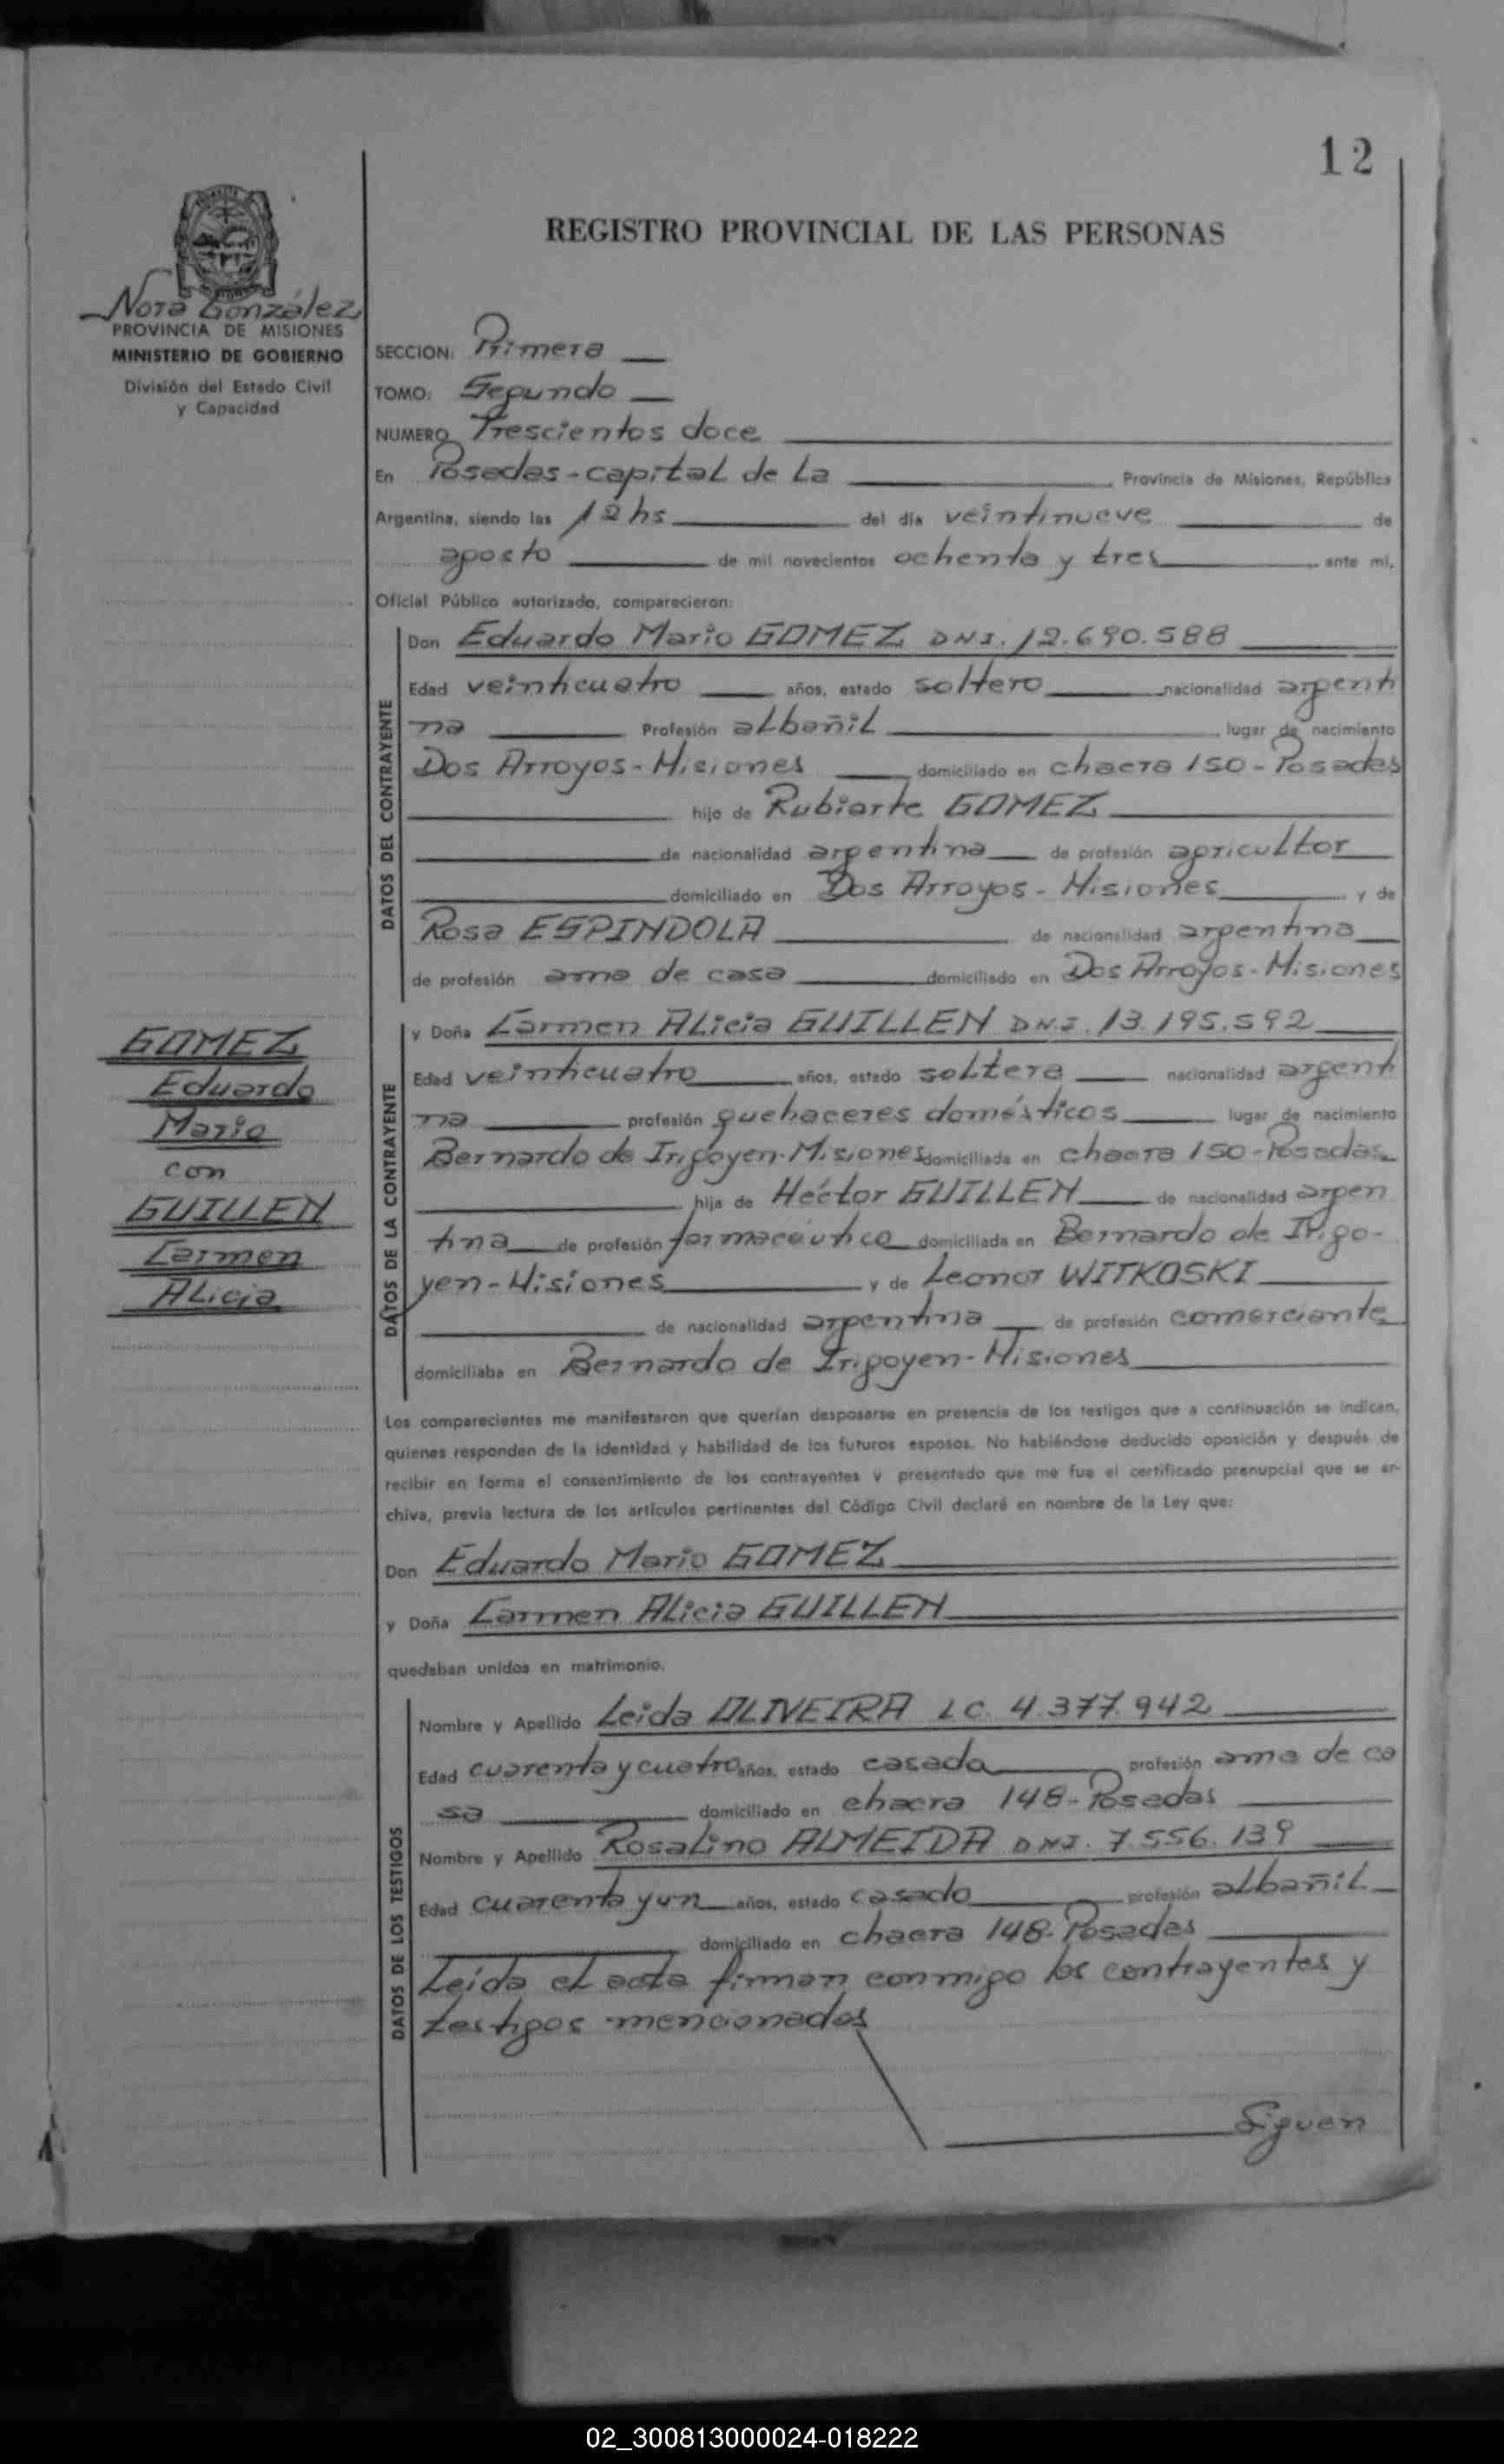 12
REGISTRO PROVINCIAL DE LAS PERSONAS
Nora González
PROVINCIA DE MISIONES
MINISTERIO DE GOBIERNO
División del Estado Civil
y Capacidad
SECCION: Primera
TOMO: Segundo
NUMERO Trescientos doce
En Posadas - capital de La Provincia de Misiones, República
Argentina, siendo las 12 hs del día veintinueve de
agosto de mil novecientos ochenta y tres ante mi,
Oficial Público autorizado, comparecieron:
DATOS DEL CONTRAYENTE
Don Eduardo Mario GOMEZ DNI. 12.690.588
Edad veinticuatro años, estado soltero nacionalidad argenti
na Profesión albañil lugar de nacimiento
Dos Arroyos - Misiones domiciliado en chacra 150 - Posadas
hijo de Rubiarte GOMEZ
de nacionalidad argentina de profesión agricultor
domiciliado en Dos Arroyos - Misiones y de
Rosa ESPINDOLA de nacionalidad argentina
de profesión ama de casa domiciliado en Dos Arroyos - Misiones
GOMEZ
Eduardo
Mario
con
GUILLEN
Carmen
Alicia
DATOS DE LA CONTRAYENTE
y Doña Carmen Alicia GUILLEN DNI. 13.195.592
Edad veinticuatro años, estado soltera nacionalidad argenti
na profesión quehaceres domésticos lugar de nacimiento
Bernardo de Irigoyen - Misiones domiciliada en chacra 150 - Posadas
hija de Héctor GUILLEN de nacionalidad argen
tina de profesión farmacéutico domiciliada en Bernardo de Irigo-
yen - Misiones y de Leonor WITKOSKI
de nacionalidad argentina de profesión comerciante
domiciliaba en Bernardo de Irigoyen - Misiones
Los comparecientes me manifestaron que querían desposarse en presencia de los testigos que a continuación se indican,
quienes responden de la identidad y habilidad de los futuros esposos. No habiéndose deducido oposición y después de
recibir en forma el consentimiento de los contrayentes y presentado que me fue el certificado prenupcial que se ar-
chiva, previa lectura de los artículos pertinentes del Código Civil declaré en nombre de la Ley que:
Don Eduardo Mario GOMEZ
y Doña Carmen Alicia GUILLEN
quedaban unidos en matrimonio.
DATOS DE LOS TESTIGOS
Nombre y Apellido Leida OLIVEIRA LC. 4.377.942
Edad cuarenta y cuatro años, estado casada profesión ama de ca
sa domiciliado en chacra 148 - Posadas
Nombre y Apellido Rosalino ALMEIDA DNI. 7.556.139
Edad cuarenta y un años, estado casado profesión albañil
domiciliado en chacra 148 - Posadas
Leída el acta firman conmigo los contrayentes y
testigos mencionados
Siguen
02_300813000024-018222